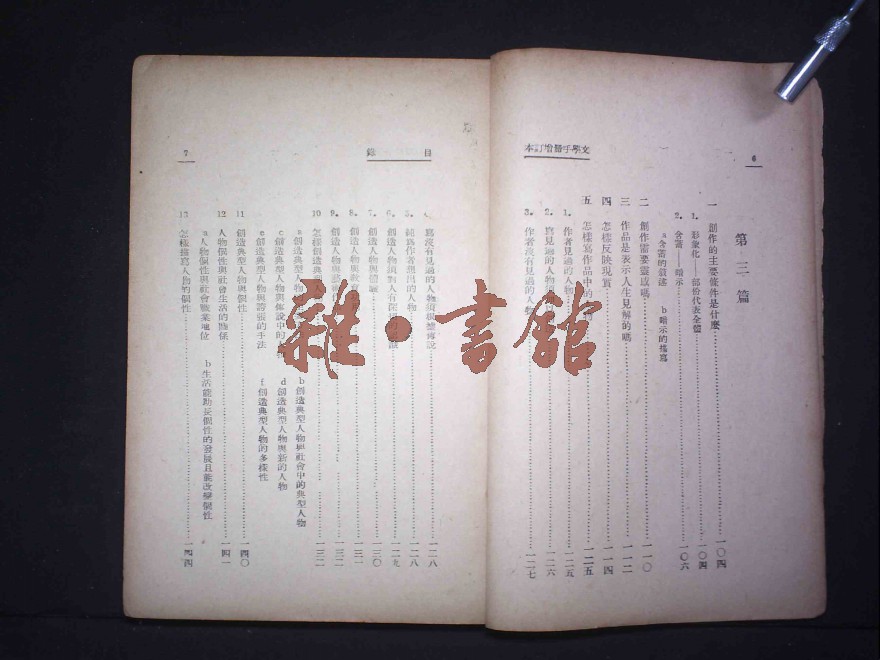 文學手册增訂本
6
第三篇
一 創作的主要條件是什麼……一〇四
1. 形象化——部份代表全體……一〇四
2. 含蓄——暗示……一〇六
a 含蓄的叙述 b 暗示的描寫
二 創作需要靈感嗎……一一〇
三 作品是表示人生見解的嗎……一一二
四 怎樣反映現實……一一四
五 怎樣寫作品中的……一二五
1. 作者見過的人物……一二五
2. 寫見過的人物……一二六
3. 作者沒有見過的人物……一二七
目錄
7
寫沒有見過的人物須根據傳說……一二八
5. 純為作者想出的人物……一二八
6. 創造人物須對人有深……一二九
7. 創造人物與體驗……一三〇
8. 創造人物與教育……一三一
9. 創造人物與……一三二
10 怎樣創造典型人物……一三二
a 創造典型人物 b 創造典型人物與社會中的典型人物
c 創造典型人物與傳說中的 d 創造典型人物與新的人物
e 創造典型人物與誇張的手法 f 創造典型人物的多樣性
11 創造典型人物與個性……一四〇
12 人物個性與社會生活的關係……一四一
a 人物個性與社會職業地位 b 生活能助長個性的發展且能改變個性
13 怎樣描寫人物的個性……一四四
雜·書館